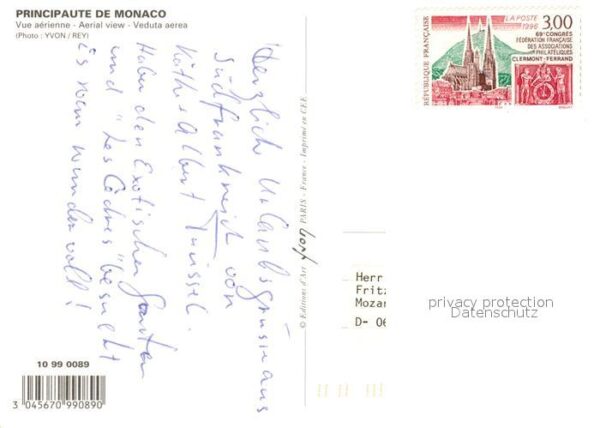 PRINCIPAUTE DE MONACO
Vue aérienne - Aerial view - Veduta aerea
(Photo : YVON / REY)
Herzliche Urlaubsgrüsse aus
Südfrankreich von
Käthe + Albert
Haben den Exotischen Garten
und "Les Cèdres" besucht
Es war wundervoll!
10 99 0089
3 045670 990890
© Editions d'Art PARIS - France - Imprimé en CEE
RÉPUBLIQUE FRANÇAISE
LA POSTE
1996
3,00
69e CONGRÈS
FÉDÉRATION FRANÇAISE
DES ASSOCIATIONS
PHILATÉLIQUES
CLERMONT-FERRAND
Herr
Fritz
Mozar
D- 06
privacy protection
Datenschutz